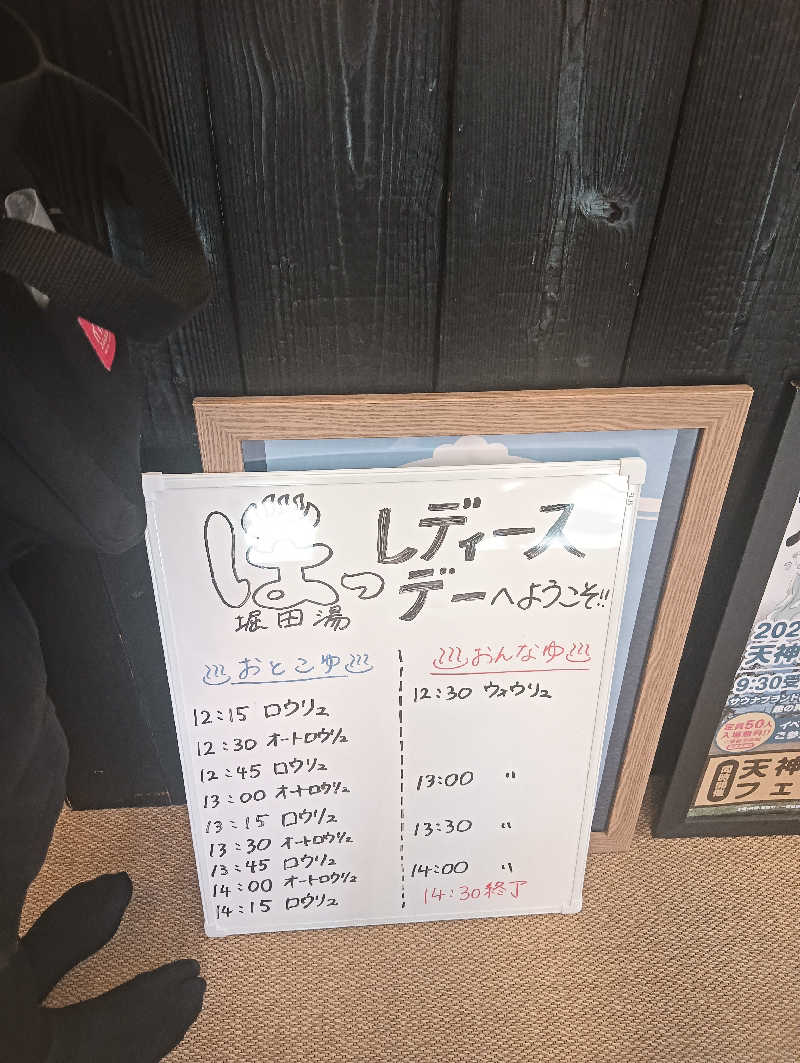 ほっ
堀田湯
レディース
デーへようこそ!!
おとこゆ
12:15 ロウリュ
12:30 オートロウリュ
12:45 ロウリュ
13:00 オートロウリュ
13:15 ロウリュ
13:30 オートロウリュ
13:45 ロウリュ
14:00 オートロウリュ
14:15 ロウリュ
おんなゆ
12:30 ウォウリュ
13:00 〃
13:30 〃
14:00 〃
14:30 終了
202
天神
9:30受
サウナブランド
定員50人
入場無料!!
イベ
ご参
天神
フェ